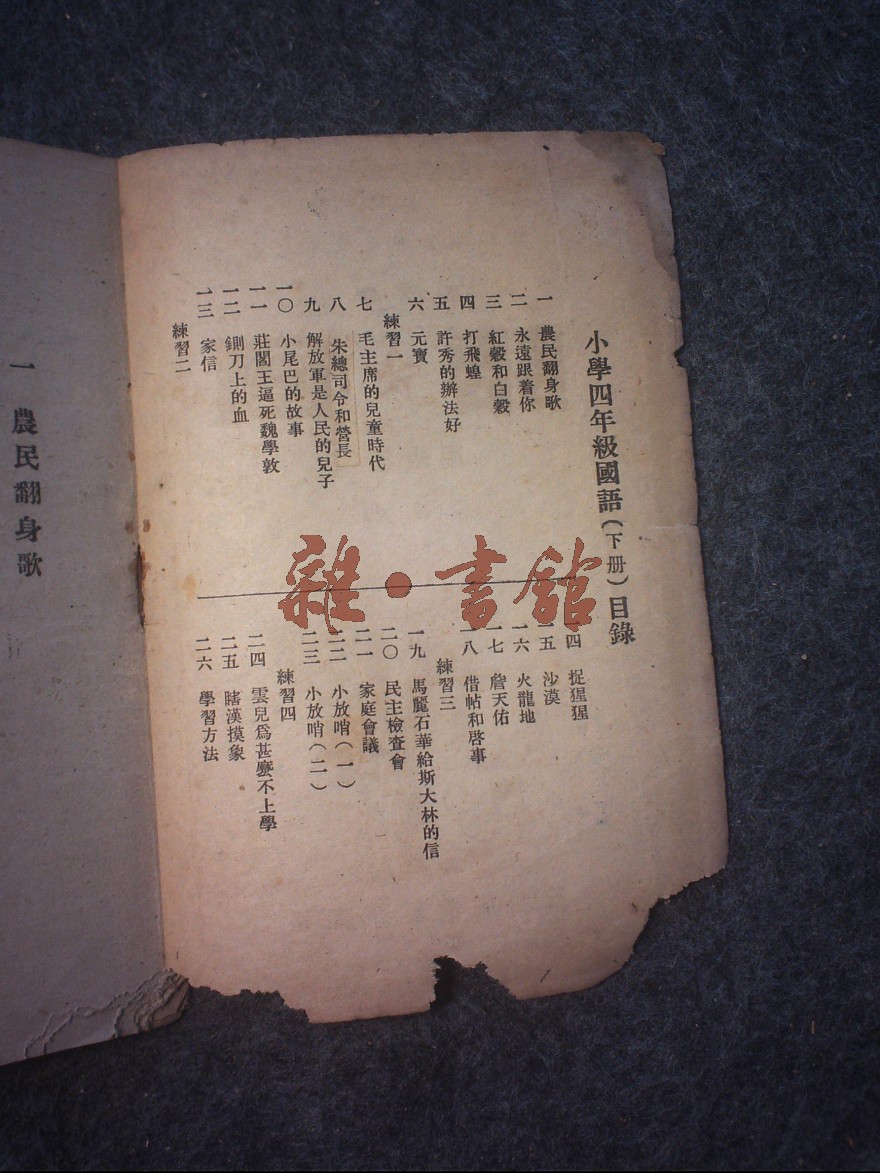 小學四年級國語（下册）目錄
一 農民翻身歌
二 永遠跟着你
三 紅穀和白穀
四 打飛蝗
五 許秀的辦法好
六 元寶
練習一
七 毛主席的兒童時代
八 朱總司令和營長
九 解放軍是人民的兒子
一〇 小尾巴的故事
一一 莊閻王逼死魏學敦
一二 鍘刀上的血
一三 家信
練習二
一四 捉猩猩
一五 沙漠
一六 火龍地
一七 詹天佑
一八 借帖和啓事
練習三
一九 馬麗石華給斯大林的信
二〇 民主檢查會
二一 家庭會議
二二 小放哨（一）
二三 小放哨（二）
練習四
二四 雲兒爲甚麼不上學
二五 瞎漢摸象
二六 學習方法
一 農民翻身歌
雜·書館